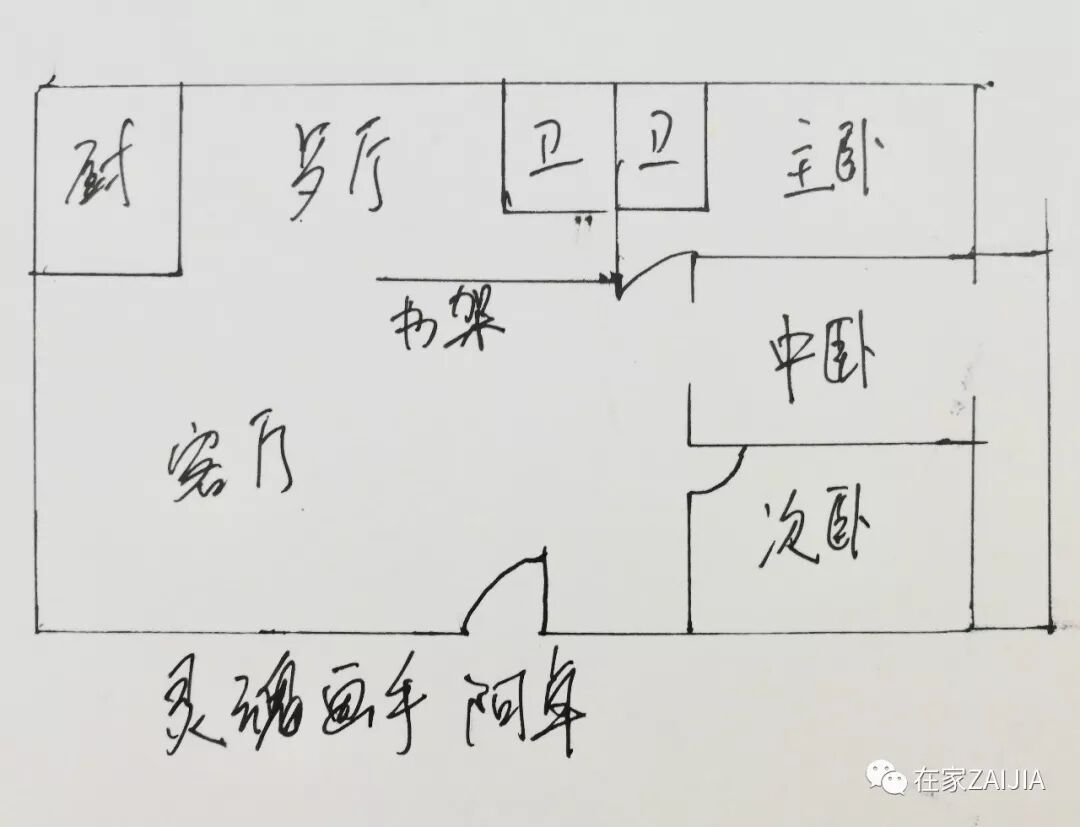 厨
岁厅
卫
卫
主卧
书架
中卧
客厅
次卧
灵魂画手 阿卓
在家ZAIJIA